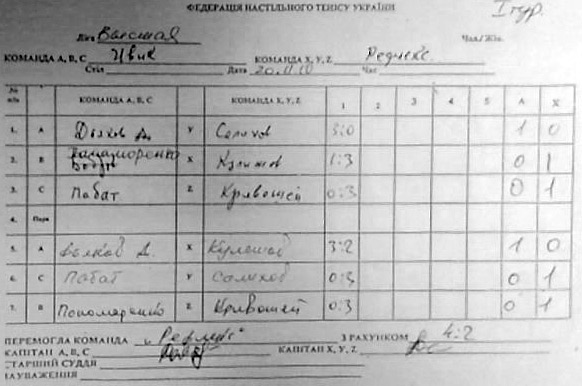 ФЕДЕРАЦІЯ НАСТІЛЬНОГО ТЕНІСУ УКРАЇНИ
I тур.
Ліга Высшая Чол/Жін.
КОМАНДА А, В, С Цвик КОМАНДА X, Y, Z Реднекс
Стіл Дата Час
№ п/п КОМАНДА А, В, С КОМАНДА X, Y, Z 1 2 3 4 5 А X
1. А А. Y Салихов 3:0 1 0
2. В Пономаренко X Кулешов 1:3 0 1
3. С Лабат Z Кривошей 0:3 0 1
4. Пара
5. А А. X Кулешов 3:2 1 0
6. С Лабат Y Салихов 0:3 0 1
7. В Пономаренко Z Кривошей 0:3 0 1
ПЕРЕМОГЛА КОМАНДА З РАХУНКОМ 4:2
КАПІТАН А, В, С КАПІТАН X, Y, Z
СТАРШИЙ СУДДЯ
ЗАУВАЖЕННЯ